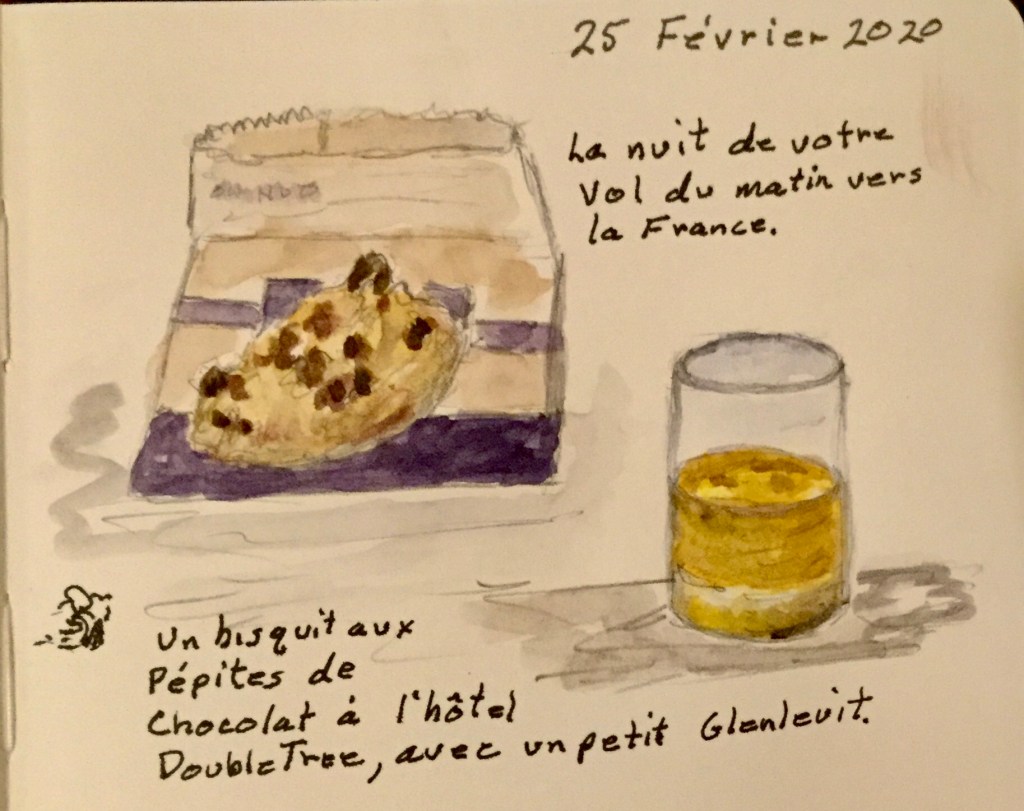 25 Février 2020
La nuit de votre
Vol du matin vers
la France.
un bisquit aux
Pépites de
Chocolat à l'hôtel
DoubleTree, avec un petit Glenlevit.